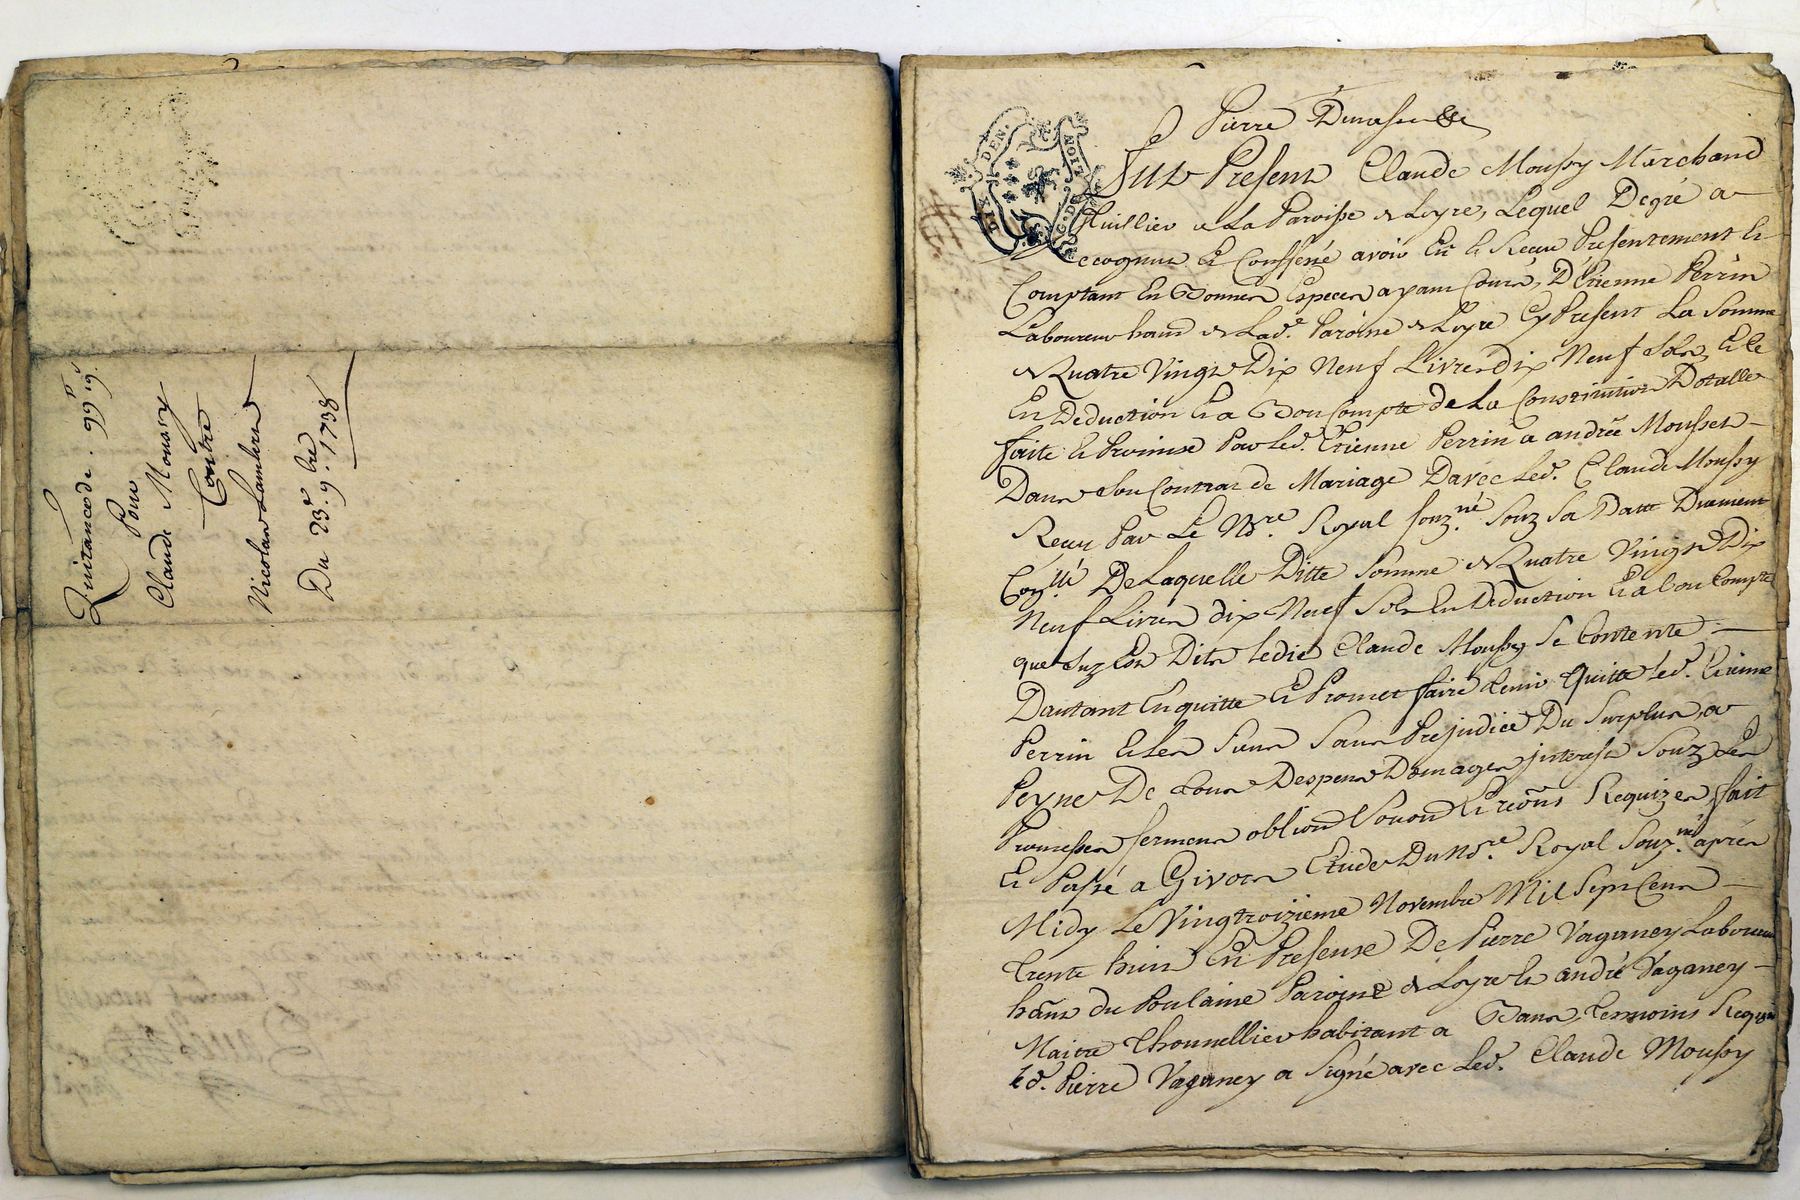 Quittance de 99ᵗᵗ 19ˢ
Pour
Claude Moussy
Contre
Nicolas Lambert
Du 23ᵉ 9.bre 1738
Pierre
DIX DEN.
G. DE
Fut Present Claude Moussy Marchand
Thuillier de La Paroisse de Loyre, Lequel De gré a
recognut Et Confessé avoir Eu et Receu Presentement Et
Comptant En Bonnes Especes ayant Cours, D'Etienne Perrin
Laboureur hant de Lad.e Paroisse de Loyre Cy Present La Somme
de Quatre Vingt Dix Neuf Livres dix Neuf Sols, Et Ce
En Deduction Et a Bon Compte de La Constitution Dotalle
faite Et Promise Par Led. Etienne Perrin a andrée Mousset
Dans Son Contrat de Mariage D'avec Led. Claude Moussy
Receu Par Le No.re Royal Souz.né Souz Sa Datte Duement
Con.llé De Laquelle Ditte Somme de Quatre Vingt Dix
Neuf Livres dix Neuf Sols En Deduction Et a bon Compte
que Suz Est Dits Ledit Claude Moussy Se Contente
Dautant En quitte Et Promet faire tenir Quitte Led. Etienne
Perrin Et Les Siens Sans Prejudice Du Surplus, a
Peyne De tous Despens Domages interest Souz Les
Promesses Sermens oblions Souons Et reõns Requizes, fait
Et Passé a Givors Etude Du No.re Royal Souz.né après
Midy Le Vingtroizieme Novembre Mil Sept Cens
trente huit En Presense De Pierre Vaganey Laboureur
hãnt du Poulaine Paroisse de Loyre Et andré Vaganey
Maitre Thonnellier habitant a Bans, temoins Requis
Led. Pierre Vaganey a Signé avec Led. Claude Moussy